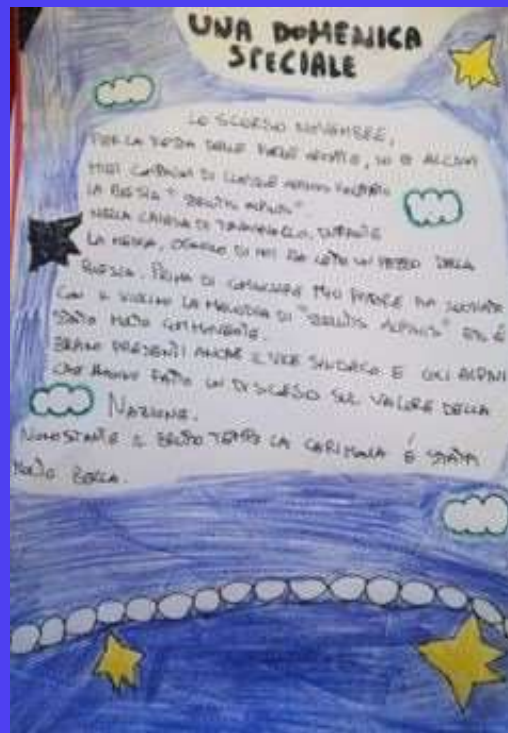 UNA DOMENICA
SPECIALE
LO SCORSO NOVEMBRE,
PER LA FESTA DELLE FORZE ARMATE, IO E ALCUNI
MIEI COMPAGNI DI CLASSE ABBIAMO
LA POESIA "STELUTIS ALPINIS".
NELLA CHIESA DI DURANTE
LA MESSA, OGNUNO DI NOI HA LETO UN PEZZO DELLA
POESIA. PRIMA DI COMINCIARE MIO PADRE HA SUONATO
CON IL VIOLINO LA MELODIA DI "STELUTIS ALPINIS" ED È
STATO MOLTO COMMOVENTE.
ERANO PRESENTI ANCHE IL VICE SINDACO E GLI ALPINI
CHE HANNO FATTO UN DISCORSO SUL VALORE DELLA
NAZIONE.
NONOSTANTE IL BRUTTO TEMPO LA CARIMONIA É STATA
MOLTO BELLA.